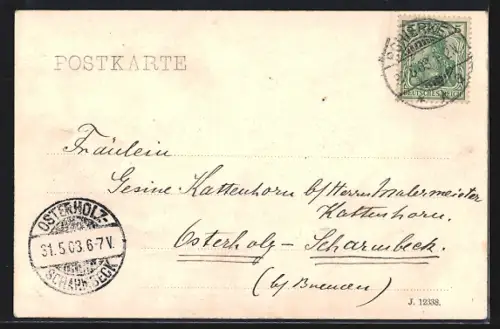 POSTKARTE
DEUTSCHES REICH
Fräulein
Gesine Kattenhorn b/Herrn Malermeister
Kattenhorn.
Osterholz-Scharmbeck.
(b/ Bremen)
OSTERHOLZ-
31.5.03.6-7V.
SCHARMBECK
J. 12338.